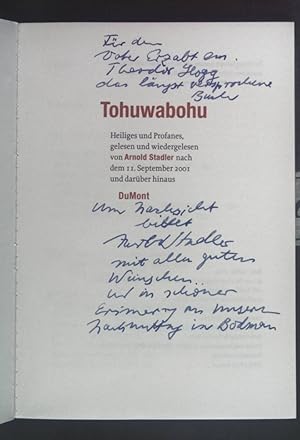 Für den
Vater Erzabt em.
Theodor Hogg
das längst versprochene
Buch
Tohuwabohu
Heiliges und Profanes,
gelesen und wiedergelesen
von Arnold Stadler nach
dem 11. September 2001
und darüber hinaus
DuMont
Um Nachsicht
bittet
Arnold Stadler
mit allen guten
Wünschen
und in schöner
Erinnerung an unseren
Nachmittag in Bodman